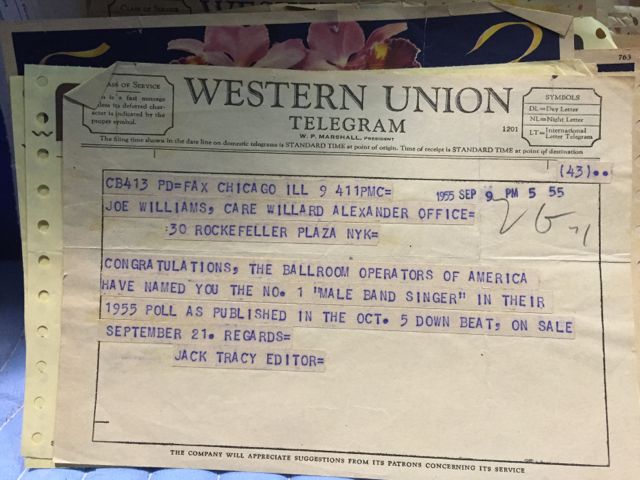 CLASS OF SERVICE
763
CLASS OF SERVICE
is a fast message
unless its deferred char-
acter is indicated by the
proper symbol.
WESTERN UNION
TELEGRAM
W. P. MARSHALL, PRESIDENT
1201
SYMBOLS
DL=Day Letter
NL=Night Letter
LT=International Letter Telegram
The filing time shown in the date line on domestic telegrams is STANDARD TIME at point of origin. Time of receipt is STANDARD TIME at point of destination
(43)••
CB413 PD=FAX CHICAGO ILL 9 411PMC=
1955 SEP 9 PM 5 55
JOE WILLIAMS, CARE WILLARD ALEXANDER OFFICE=
:30 ROCKEFELLER PLAZA NYK=
CONGRATULATIONS, THE BALLROOM OPERATORS OF AMERICA
HAVE NAMED YOU THE NO. 1 "MALE BAND SINGER" IN THEIR
1955 POLL AS PUBLISHED IN THE OCT. 5 DOWN BEAT, ON SALE
SEPTEMBER 21. REGARDS=
JACK TRACY EDITOR=
THE COMPANY WILL APPRECIATE SUGGESTIONS FROM ITS PATRONS CONCERNING ITS SERVICE